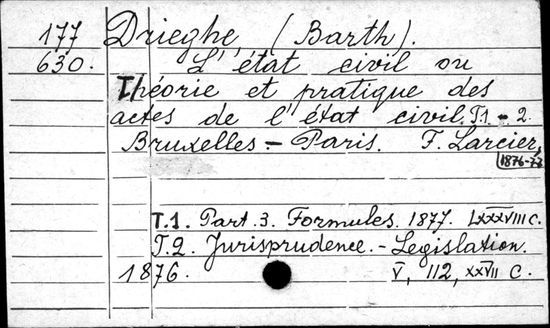 177 Drieghe, (Barth).
630. L'état civil ou
Théorie et pratique des
actes de l'état civil. T.1 - 2.
Bruxelles - Paris. F. Larcier,
1876-77
T.1. Part. 3. Formules. 1877. LXXXVIII c.
T.2. Jurisprudence. - Legislation.
1876. V, 112, XXVII c.